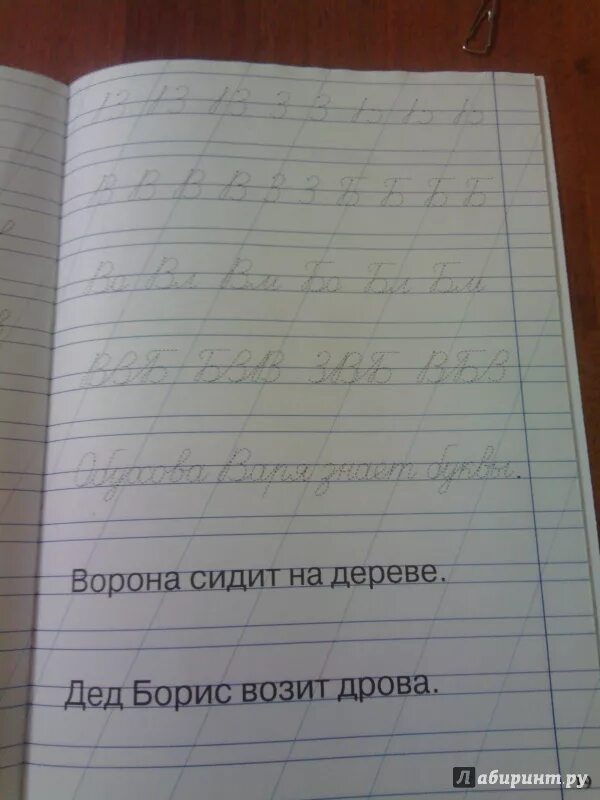 В В В В З З Б Б Б Б
Во Вл Вм Бо Бл Бм
ВЗБ БЗВ ЗВБ ВБЗ
Обухова Варя знает буквы.
Ворона сидит на дереве.
Дед Борис возит дрова.
Лабиринт.ру